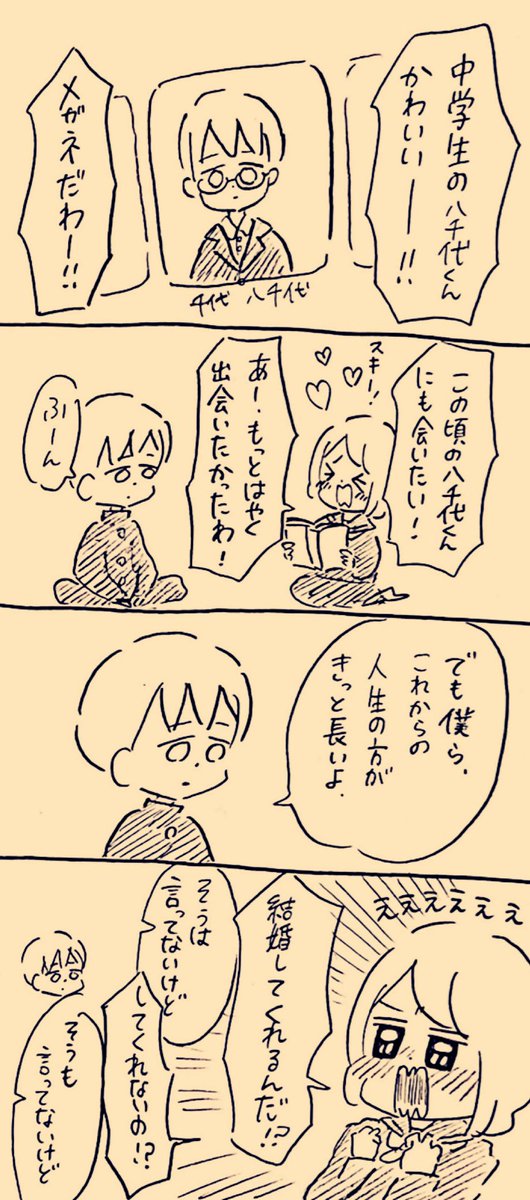 中学生の八千代くん
かわいいーー!!
メガネだわー!!
千代 八千代
この頃の八千代くん
にも会いたい!
スキー!
あー、もっとはやく
出会いたかったわ!
ふーん
でも僕ら、
これからの
人生の方が
きっと長いよ.
えぇぇぇぇぇ
結婚してくれるんだ!?
そうは
言ってないけど
してくれないの!?
そうも
言ってないけど